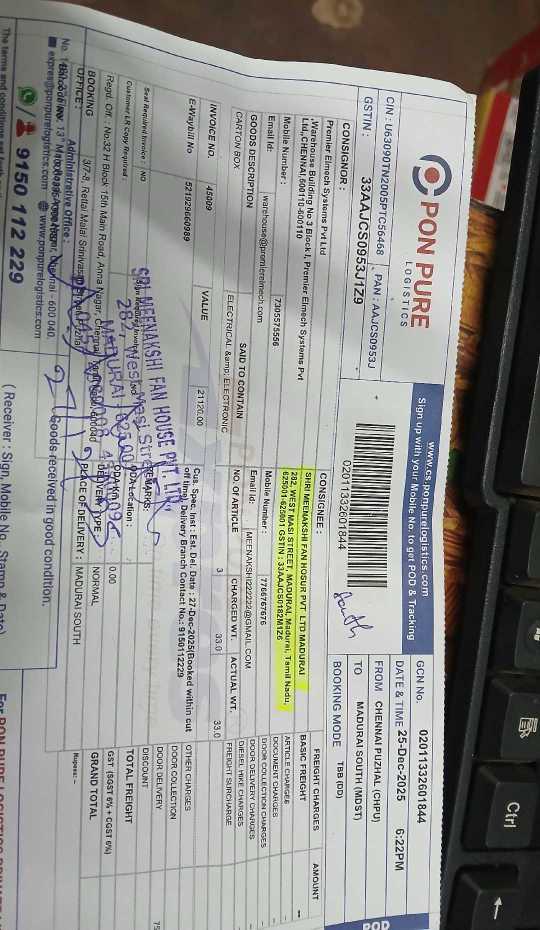 PON PURE
LOGISTICS
CIN : U63090TN2005PTC56468 , PAN : AAJCS0953J
GSTIN : 33AAJCS0953J1Z9
www.cs.ponpurelogistics.com
Sign up with your Mobile No.to get POD & Tracking
02011332601844
GCN No. 02011332601844
DATE & TIME 25-Dec-2025 6:22PM
FROM CHENNAI PUZHAL (CHPU)
TO MADURAI SOUTH (MDST)
BOOKING MODE TBB (DD)
POD
CONSIGNOR :
Premier Elmech Systems Pvt Ltd
,Warehouse Building No 3 Block I, Premier Elmech Systems Pvt
Ltd.,CHENNAI,600110-600110
Mobile Number : 7305575556
Email Id: warehouse@premierelmech.com
CONSIGNEE :
SHRI MEENAKSHI FAN HOSUR PVT LTD MADURAI
282, WEST MASI STREET, MADURAI, Madurai, Tamil Nadu,
625001-625001 GSTIN : 33AAJCS0182M1Z6
Mobile Number : 7708767676
Email Id: MEENAKSHI222222@GMAIL.COM
GOODS DESCRIPTION SAID TO CONTAIN NO. OF ARTICLE CHARGED WT. ACTUAL WT.
CARTON BOX ELECTRICAL &amp; ELECTRONIC 3 33.0 33.0
INVOICE NO. 45009 VALUE 21120.00
E-Waybill No 521929660989
Cus. Spec. Inst : Est. Del. Date : 27-Dec-2025(Booked within cut
off time), Delivery Branch Contact No.: 9150112229
Seal Required Invoice : NO
Customer LR Copy Required
ODA Location :
ODA Km 0.00
DELIVERY TYPE NORMAL
PLACE OF DELIVERY : MADURAI SOUTH
FREIGHT CHARGES AMOUNT
BASIC FREIGHT --
ARTICLE CHARGES --
DOCUMENT CHARGES --
DOOR COLLECTION CHARGES --
DOOR DELIVERY CHARGES
DIESEL HIKE CHARGES
FREIGHT SURCHARGE
OTHER CHARGES
DOOR COLLECTION
DOOR DELIVERY
DISCOUNT
TOTAL FREIGHT
GST (SGST 6% + CGST 6%)
GRAND TOTAL
Rupees: --
SRI MEENAKSHI FAN HOUSE PVT. LTD.
282, West Masi Street
MADURAI
BOOKING
OFFICE :
3/7-8, Rettai Malai
Regd. Off. : No.32 H Block 15th Main Road, Anna Nagar, Chennai
Administrative Office :
Chennai - 600 040.
expres@ponpurelogistics.com @ www.ponpurelogistics.com
9150 112 229
Goods received in good condition.
( Receiver : Sign, Mobile No., Stamp & Date)
The terms and conditions
For PON PURE LOGISTICS PRIVATE
Ctrl